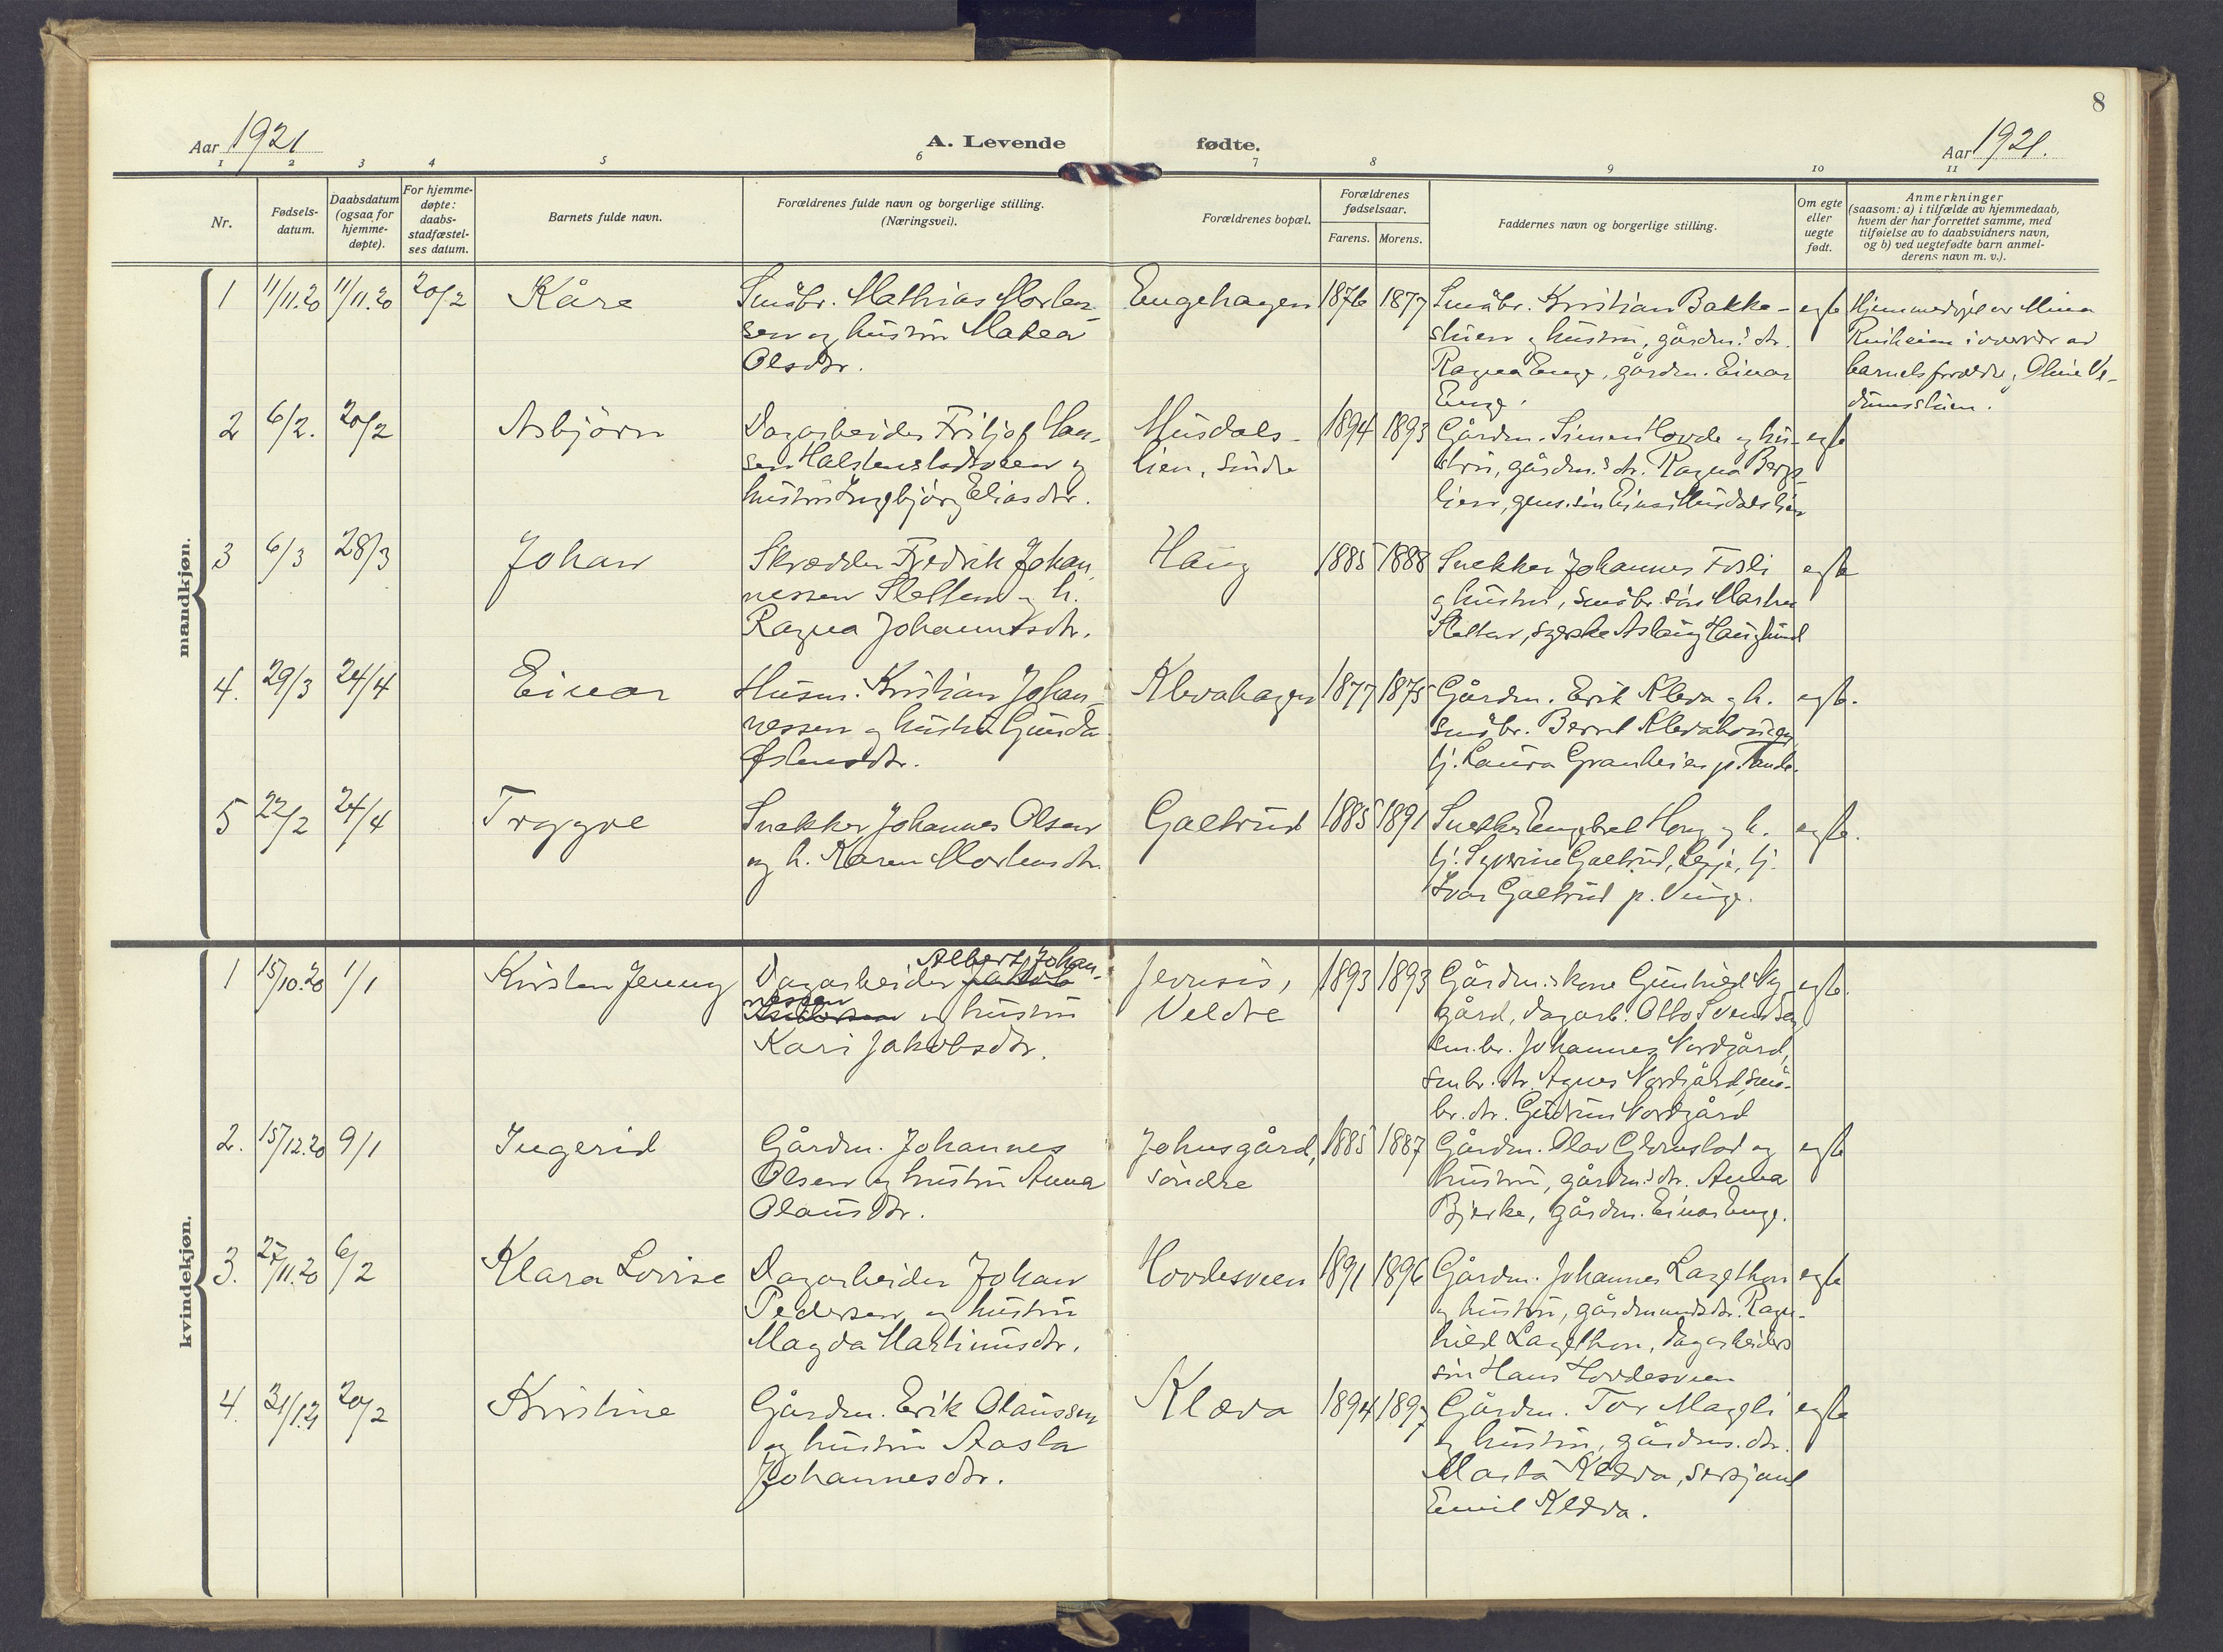 8
Aar 1921
A. Levende fødte.
Aar 1921.
1 2 3 4 5 6 7 8 9 10 11
Nr.
Fødsels-
datum.
Daabsdatum
(ogsaa for
hjemme-
døpte).
For hjemme-
døpte:
daabs-
stadfæstel-
ses datum.
Barnets fulde navn.
Forældrenes fulde navn og borgerlige stilling.
(Næringsvei).
Forældrenes bopæl.
Forældrenes
fødselsaar.
Farens. Morens.
Faddernes navn og borgerlige stilling.
Om egte
eller
uegte
født.
Anmerkninger
(saasom: a) i tilfælde av hjemmedaab,
hvem der har forrettet samme, med
tilføielse av to daabsvidners navn,
og b) ved uegtefødte barn anmel-
derens navn m. v.).
mandkjøn.
1 11/11.20 11/11.20 20/2 Kåre
Småbr. Mathias Morten-
sen og hustru Matea
Olsdtr.
Engehagen 1876 1877
Småbr. Kristian Bakke-
stuen og hustru, gårdm.s dtr.
Ragna Enge, gårdm. Einar
Enge.
egte
Hjemmedøpt av Mina
i overvær av
barnets forældre, Oline Ve-
dumsstuen.
2 6/2. 20/2 Asbjörn
Dagarbeider Fritjof Han-
sen Halstenstadsveen og
hustru Ingbjörg Eliasdtr.
Musdals-
lien, söndre
1894 1893
Gårdm. Simen Hovde og hu-
stru, gårdm.s dtr. Ragna Berg-
lien, Einar Musdalslien
egte
3 6/3 28/3 Johan
Skrædder Fredrik Johan-
nessen Sletten og h.
Ragna Johannesdtr.
Haug 1885 1888
Snekker Johannes Fosli
og hustru, småbr. sön Morten
Sletten, syerske Aslaug Hauglund
egte
4. 29/3 24/4 Einar
Husm. Kristian Johan-
nessen og hustru Gunda
Østensdtr.
Klevahagen 1877 1875
Gårdm. Erik Kleva og h.
småbr. Bernt Klevahaugen,
tj. Laura Granheien p. Tande.
egte.
5 22/2 24/4 Trygve
Snekker Johannes Olsen
og h. Karen Mortensdtr.
Galtrud 1885 1891
Snekker Engebret Hong og h.
tj. Syverine Galtrud, tj.
Ivar Galtrud p. Vinge.
egte.
kvindekjøn.
1 15/10.20 1/1 Kirsten Jenny
Albert Johan-
Dagarbeider
nessen
og hustru
Kari Jakobsdtr.
Jevnsis,
Veldre
1893 1893
Gårdm.skone Gunhild Ny-
gård, dagarb. Otto Svendsen
sm.br. Johannes Nordgård,
smbr. dtr. Agnes Nordgård, små-
br. dtr. Gudrun Nordgård
egte.
2. 15/12.20 9/1 Ingerid
Gårdm. Johannes
Olsen og hustru Anna
Olausdtr.
Johnsgård,
söndre
1885 1887
Gårdm. Olav Glörnstad og
hustru, gårdm.s dtr. Anna
Bjerke, gårdm. Einar Enge.
egte
3. 27/11.20 6/2 Klara Lovise
Dagarbeider Johan
Pedersen og hustru
Magda Martinusdtr.
Hovdesveen 1891 1896
Gårdm. Johannes Lagethon
og hustru, gårdmandsdtr. Ragn-
hild Lagethon, dagarbeiders
sön Hans Hovdesveen
egte
4. 31/1.21 20/2 Kristine
Gårdm. Erik Olaussen
og hustru Aasta
Johannesdtr.
Klæva 1894 1897
Gårdm. Tor Mageli
og hustru, gårdm.s. dtr.
Marta Klæva, sersjant
Emil Klæva.
egte